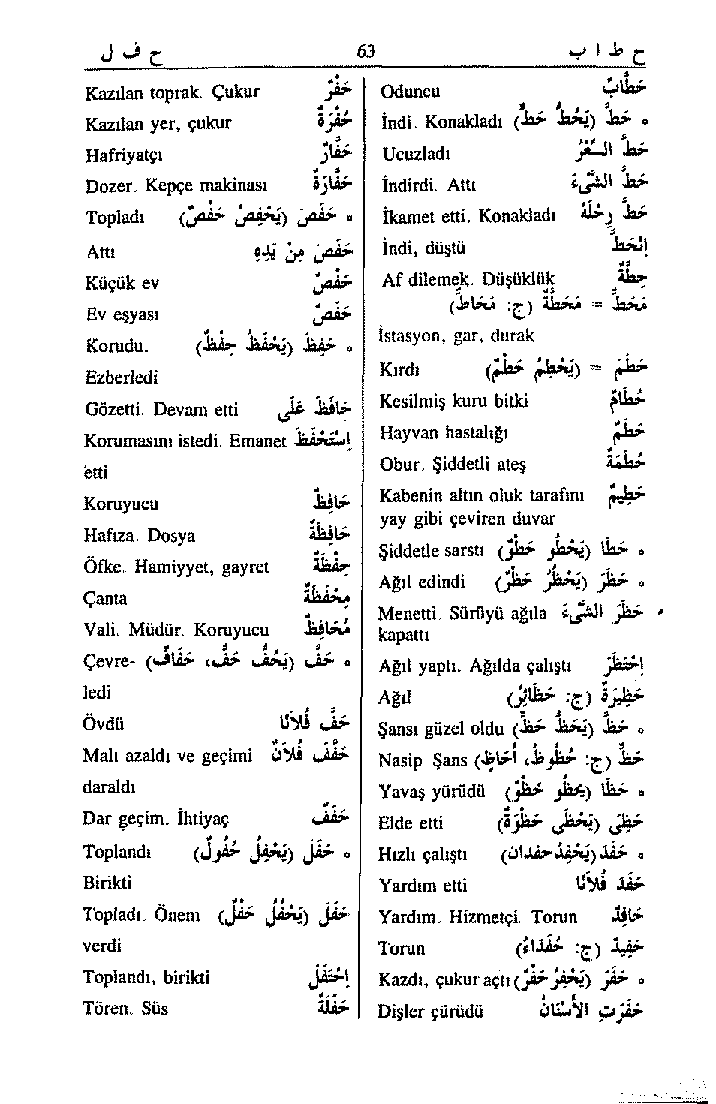 ح ط ا ب 63 ح ف ل
Oduncu حَطَّابٌ
İndi. Konakladı (حَطَّ (يَحُطُّ حَطّ ٥
Ucuzladı حَطَّ السِّعْرُ
İndirdi. Attı حَطَّ الشَّيْءَ
İkamet etti. Konakladı حَطَّ رِحْلَهُ
İndi, düştü اِنْحَطَّ
Af dilemek. Düşüklük حِطَّةٌ
مَحَطّ = مَحَطَّةٌ (ج: مَحَاطّ)
İstasyon, gar, durak
Kırdı حَطَمَ = (يَحْطِمُ حَطْمٌ)
Kesilmiş kuru bitki حُطَامٌ
Hayvan hastalığı حَطَمٌ
Obur. Şiddetli ateş حُطَمَةٌ
Kabenin altın oluk tarafını حَطِيمٌ
yay gibi çeviren duvar
Şiddetle sarstı ٥ حَطَا (يَحْطُو حَطْوٌ)
Ağıl edindi ٥ حَظَرَ (يَحْظُرُ حَظْرٌ)
Menetti. Sürüyü ağıla حَظَرَ الشَّيْءَ
kapattı
Ağıl yaptı. Ağılda çalıştı اِحْتَظَرَ
Ağıl حَظِيرَةٌ (ج: حَظَائِرُ)
Şansı güzel oldu ٥ حَظَّ (يَحَظُّ حَظّ)
Nasip Şans حَظٌّ (ج: حُظُوظ، أَحَاظ)
Yavaş yürüdü ٥ حَظَا (يحظُو حَظْوٌ)
Elde etti حَظِيَ (يَحْظَى حَظْوَةٌ)
Hızlı çalıştı ٥ حَفَدَ (يَحْفِدُ حَفَدان)
Yardım etti حَفَدَ فُلاَنًا
Yardım. Hizmetçi. Torun حَافِدٌ
Torun حَفِيدٌ (ج: حُفَدَاءُ)
Kazdı, çukur açtı ٥ حَفَرَ (يَحْفِرُ حَفْرٌ)
Dişler çürüdü حَفَرَتِ الأَسْنَانُ
Kazılan toprak. Çukur حَفْرٌ
Kazılan yer, çukur حُفْرَةٌ
Hafriyatçı حَفَّارٌ
Dozer. Kepçe makinası حَفَّارَةٌ
Topladı ٥ حَفَصَ (يَحْفِصُ حَفْصٌ)
Attı حَفَصَ مِنْ يَدِهِ
Küçük ev حَفْصٌ
Ev eşyası حَفَصٌ
Korudu. ٥ حَفِظَ (يَحْفَظُ حِفْظٌ)
Ezberledi
Gözetti. Devam etti حَافَظَ عَلَى
Korumasını istedi. Emanet اِسْتَحْفَظَ
etti
Koruyucu حَافِظٌ
Hafıza. Dosya حَافِظَةٌ
Öfke. Hamiyyet, gayret حِفْظَةٌ
Çanta مِحْفَظَةٌ
Vali. Müdür. Koruyucu مُحَافِظٌ
Çevre- ٥ حَفَّ (يَحُفُّ حَفّ، حَفَاف)
ledi
Övdü حَفَّ فُلاَنًا
Malı azaldı ve geçimi حَفَّفَ فُلاَنٌ
daraldı
Dar geçim. İhtiyaç حَفَفٌ
Toplandı ٥ حَفَلَ (يَحْفِلُ حُفُولٌ)
Birikti
Topladı. Önem حَفَلَ (يَحْفُلُ حَفْلٌ)
verdi
Toplandı, birikti اِحْتَفَلَ
Tören. Süs حَفْلَةٌ